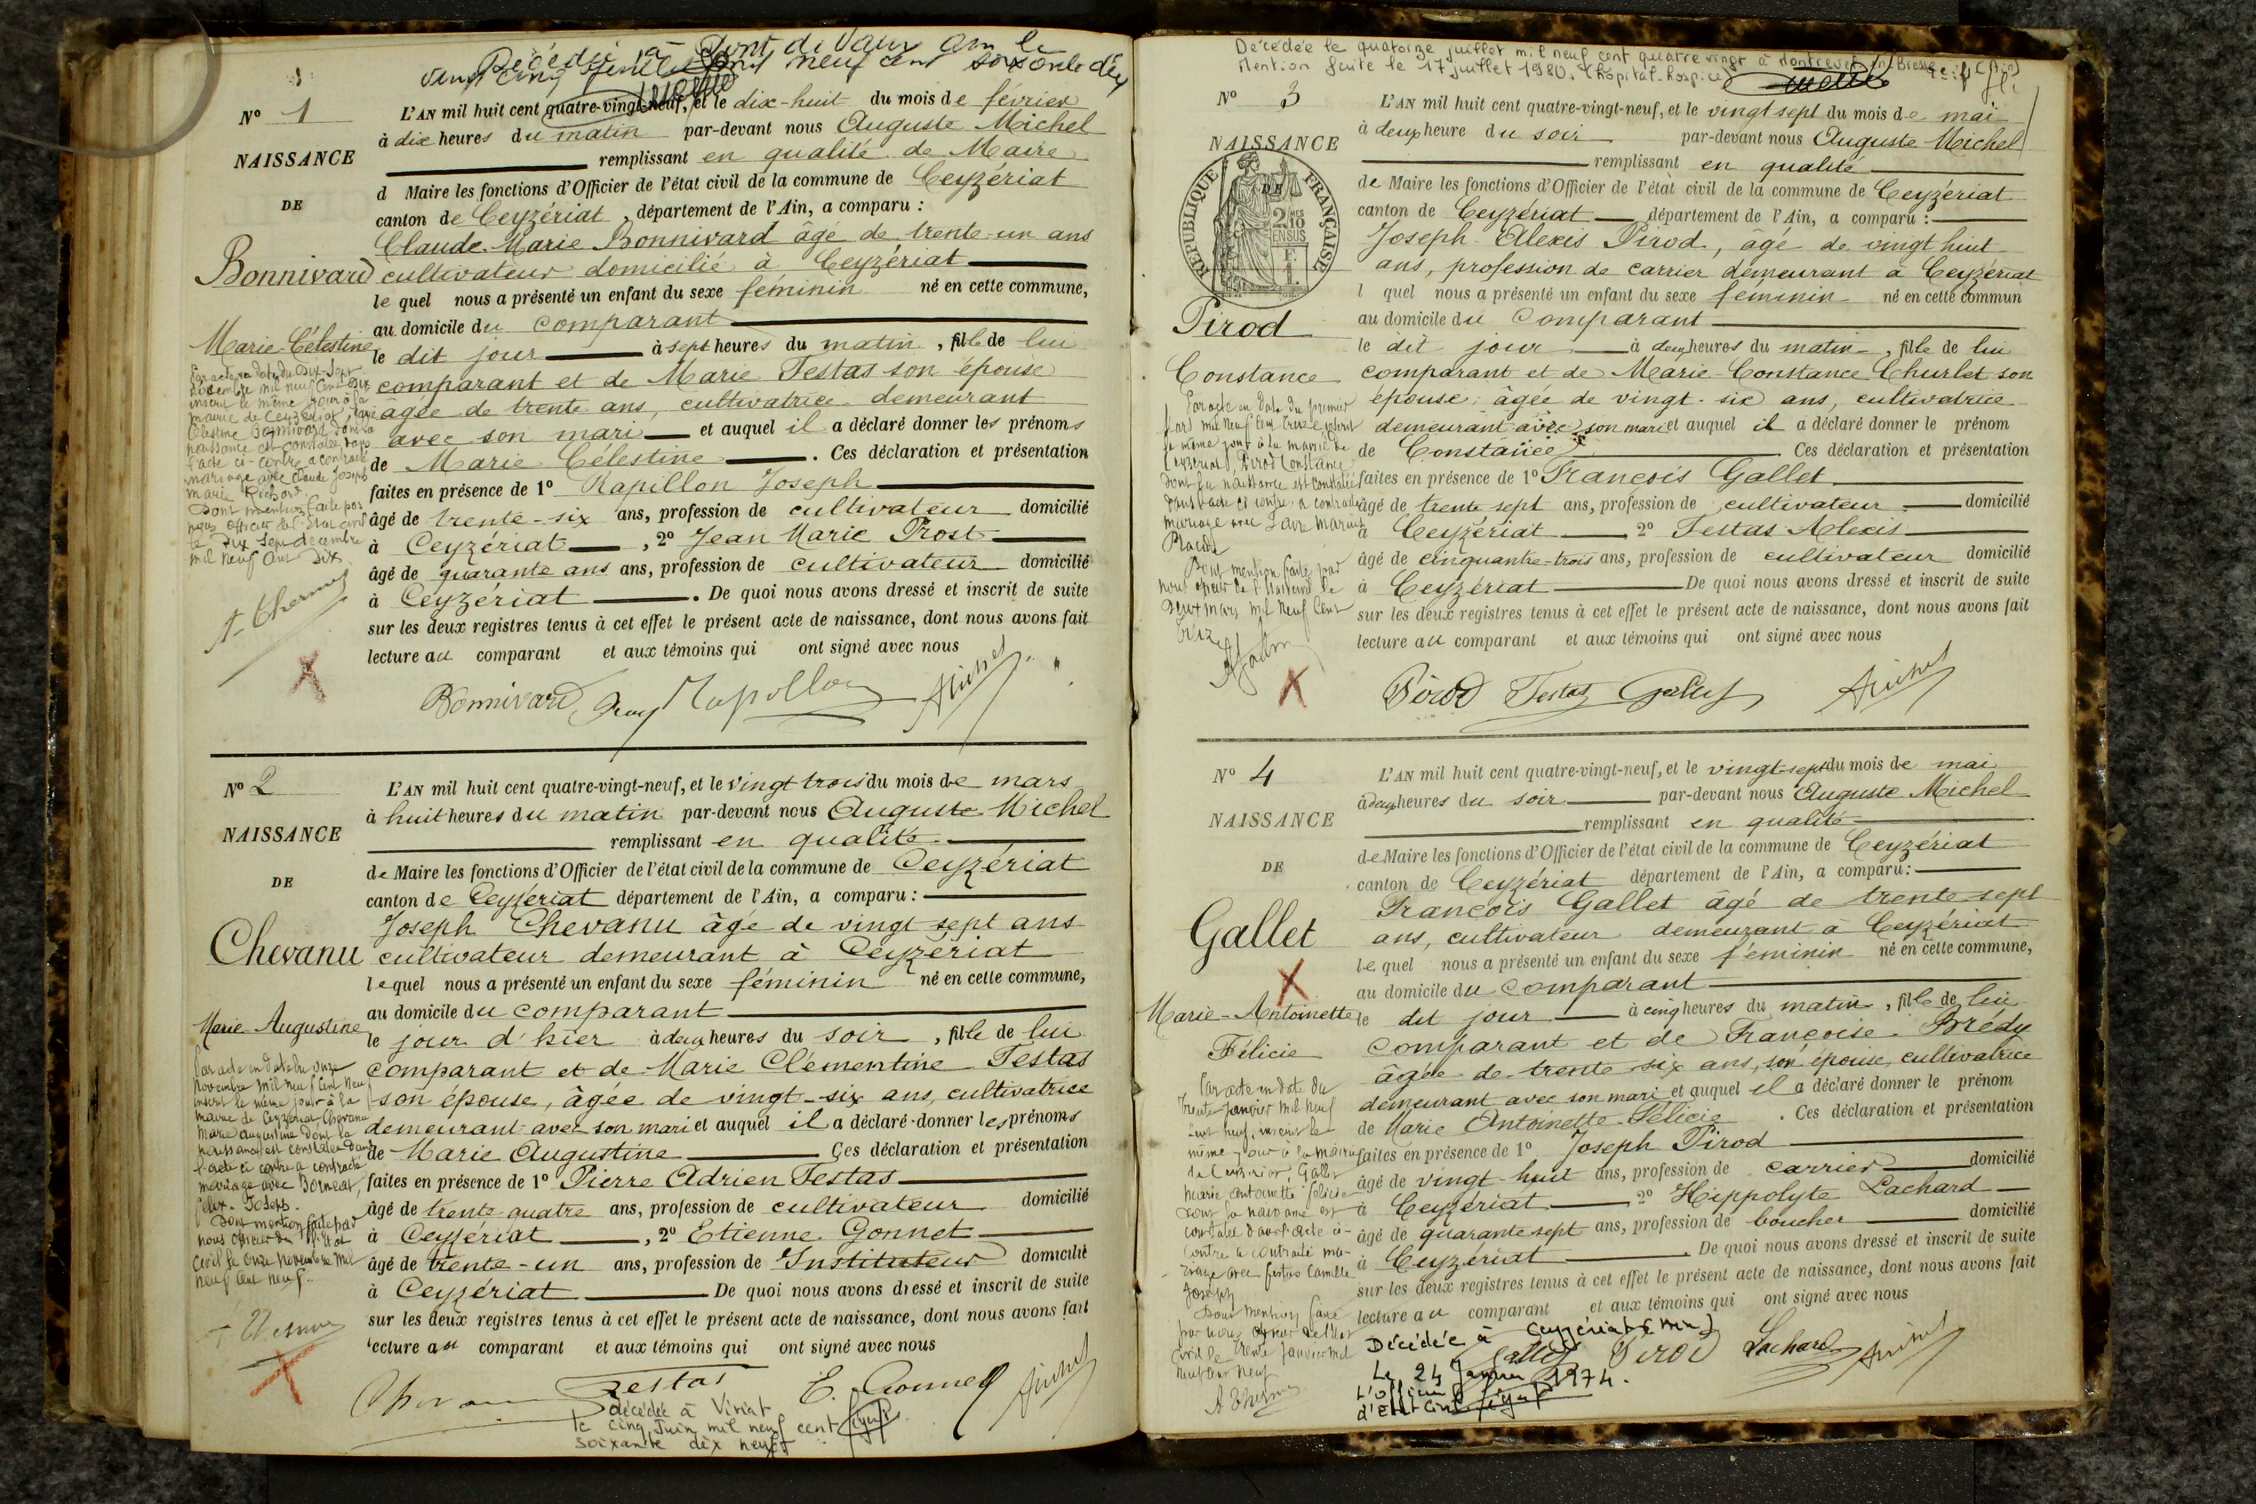 Décédée à Pont de Vaux Ain le
vingt cinq mil neuf cent soixante dix
1
N° 1
NAISSANCE
DE
Bonnivard
Marie Célestine
Par acte en date du Dix-Sept
Décembre mil neuf cent Dix
inscrit le même jour à la
mairie de Ceyzériat, Marie
Célestine Bonnivard dont la
naissance est constatée dans
l'acte ci-contre a contracté
mariage avec Claude Joseph
Marie Richard.
Dont mention faite par
nous officier de l'état civil
le Dix Sept décembre
mil neuf cent Dix
L'AN mil huit cent quatre-vingt-neuf, et le dix-huit du mois de février
à dix heures du matin par-devant nous Auguste Michel
remplissant en qualité de Maire
d Maire les fonctions d'Officier de l'état civil de la commune de Ceyzériat
canton de Ceyzériat, département de l'Ain, a comparu :
Claude Marie Bonnivard âgé de trente-un ans
cultivateur domicilié à Ceyzériat
lequel nous a présenté un enfant du sexe féminin né en cette commune,
au domicile du comparant
le dit jour à sept heures du matin, fille de lui
comparant et de Marie Testas son épouse
âgée de trente ans, cultivatrice demeurant
avec son mari et auquel il a déclaré donner les prénoms
de Marie Célestine. Ces déclaration et présentation
faites en présence de 1° Rapillon Joseph
âgé de trente-six ans, profession de cultivateur domicilié
à Ceyzériat, 2° Jean Marie Prost
âgé de quarante ans ans, profession de cultivateur domicilié
à Ceyzériat. De quoi nous avons dressé et inscrit de suite
sur les deux registres tenus à cet effet le présent acte de naissance, dont nous avons fait
lecture au comparant et aux témoins qui ont signé avec nous
Bonnivard Rapillon AMichel
N° 2
NAISSANCE
DE
Chevanu
Marie Augustine
Par acte en date du onze
Novembre mil neuf cent neuf
inscrit le même jour à la
mairie de Ceyzériat, Chevanu
Marie Augustine dont la
naissance est constatée dans
l'acte ci contre a contracté
mariage avec Borneat,
Félix-Joseph.
Dont mention faite par
nous officier de l'état
civil le onze Novembre mil
neuf cent neuf.
L'AN mil huit cent quatre-vingt-neuf, et le vingt trois du mois de mars
à huit heures du matin par-devant nous Auguste Michel
remplissant en qualité
de Maire les fonctions d'Officier de l'état civil de la commune de Ceyzériat
canton de Ceyzériat département de l'Ain, a comparu :
Joseph Chevanu âgé de vingt sept ans
cultivateur demeurant à Ceyzériat
lequel nous a présenté un enfant du sexe féminin né en cette commune,
au domicile du comparant
le jour d'hier à deux heures du soir, fille de lui
comparant et de Marie Clémentine Testas
son épouse, âgée de vingt-six ans, cultivatrice
demeurant avec son mari et auquel il a déclaré donner les prénoms
de Marie Augustine Ces déclaration et présentation
faites en présence de 1° Pierre Adrien Testas
âgé de trente quatre ans, profession de cultivateur domicilié
à Ceyzériat, 2° Etienne Gonnet
âgé de trente-un ans, profession de Instituteur domicilié
à Ceyzériat De quoi nous avons dressé et inscrit de suite
sur les deux registres tenus à cet effet le présent acte de naissance, dont nous avons fait
lecture au comparant et aux témoins qui ont signé avec nous
Testas E. Gonnet AMichel
décédée à Viriat
le cinq Juin mil neuf cent
soixante dix neuf
Décédée le quatorze juillet mil neuf cent quatre vingt à Montrevel en Bresse (Ain)
Mention faite le 17 juillet 1980. (hôpital-hospice)
N° 3
NAISSANCE
DE
RÉPUBLIQUE FRANÇAISE
Pirod
Constance
Par acte en date du premier
Mars mil neuf cent treize inscrit
le même jour à la mairie de
Ceyzériat, Pirod Constance
dont la naissance est constatée
dans l'acte ci contre a contracté
mariage avec Marius
Placide
Dont mention faite par
nous officier de l'état civil le
Deux mars mil neuf cent
treize
L'AN mil huit cent quatre-vingt-neuf, et le vingt sept du mois de mai
à deux heure du soir par-devant nous Auguste Michel
remplissant en qualité
de Maire les fonctions d'Officier de l'état civil de la commune de Ceyzériat
canton de Ceyzériat département de l'Ain, a comparu :
Joseph Alexis Pirod, âgé de vingt huit
ans, profession de carrier demeurant à Ceyzériat
l quel nous a présenté un enfant du sexe féminin né en cette commun
au domicile du comparant
le dit jour à deux heures du matin, fille de lui
comparant et de Marie Constance Churlet son
épouse, âgée de vingt-six ans, cultivatrice
demeurant avec son mari et auquel il a déclaré donner le prénom
de Constance Ces déclaration et présentation
faites en présence de 1° François Gallet
âgé de trente sept ans, profession de cultivateur domicilié
à Ceyzériat 2° Testas Alexis
âgé de cinquante-trois ans, profession de cultivateur domicilié
à Ceyzériat De quoi nous avons dressé et inscrit de suite
sur les deux registres tenus à cet effet le présent acte de naissance, dont nous avons fait
lecture au comparant et aux témoins qui ont signé avec nous
Pirod Testas Gallet AMichel
N° 4
NAISSANCE
DE
Gallet
Marie-Antoinette
Félicie
Par acte en date du
Trente janvier mil neuf
cent neuf, inscrit le
même jour à la mairie
de Ceyzériat, Gallet
Marie Antoinette Félicie
dont la naissance est
constatée dans l'acte ci-
contre a contracté ma-
riage avec Testas Camille
Joseph
Dont mention faite
par nous officier de l'état
civil le trente janvier mil
neuf cent neuf
L'AN mil huit cent quatre-vingt-neuf, et le vingt-sept du mois de mai
à deux heures du soir par-devant nous Auguste Michel
remplissant en qualité
de Maire les fonctions d'Officier de l'état civil de la commune de Ceyzériat
canton de Ceyzériat département de l'Ain, a comparu :
François Gallet âgé de trente sept
ans, cultivateur demeurant à Ceyzériat
lequel nous a présenté un enfant du sexe féminin né en cette commune,
au domicile du comparant
le dit jour à cinq heures du matin, fille de lui
comparant et de Françoise Brédy
âgée de trente six ans, son épouse, cultivatrice
demeurant avec son mari et auquel il a déclaré donner le prénom
de Marie Antoinette Félicie. Ces déclaration et présentation
faites en présence de 1° Joseph Pirod
âgé de vingt-huit ans, profession de carrier domicilié
à Ceyzériat 2° Hippolyte Lachard
âgé de quarante sept ans, profession de boucher domicilié
à Ceyzériat. De quoi nous avons dressé et inscrit de suite
sur les deux registres tenus à cet effet le présent acte de naissance, dont nous avons fait
lecture au comparant et aux témoins qui ont signé avec nous
Décédée à Ceyzériat (Ain)
Le 24 Janvier 1974.
L'officier
d'Etat Civil
Gallet Pirod Lachard AMichel